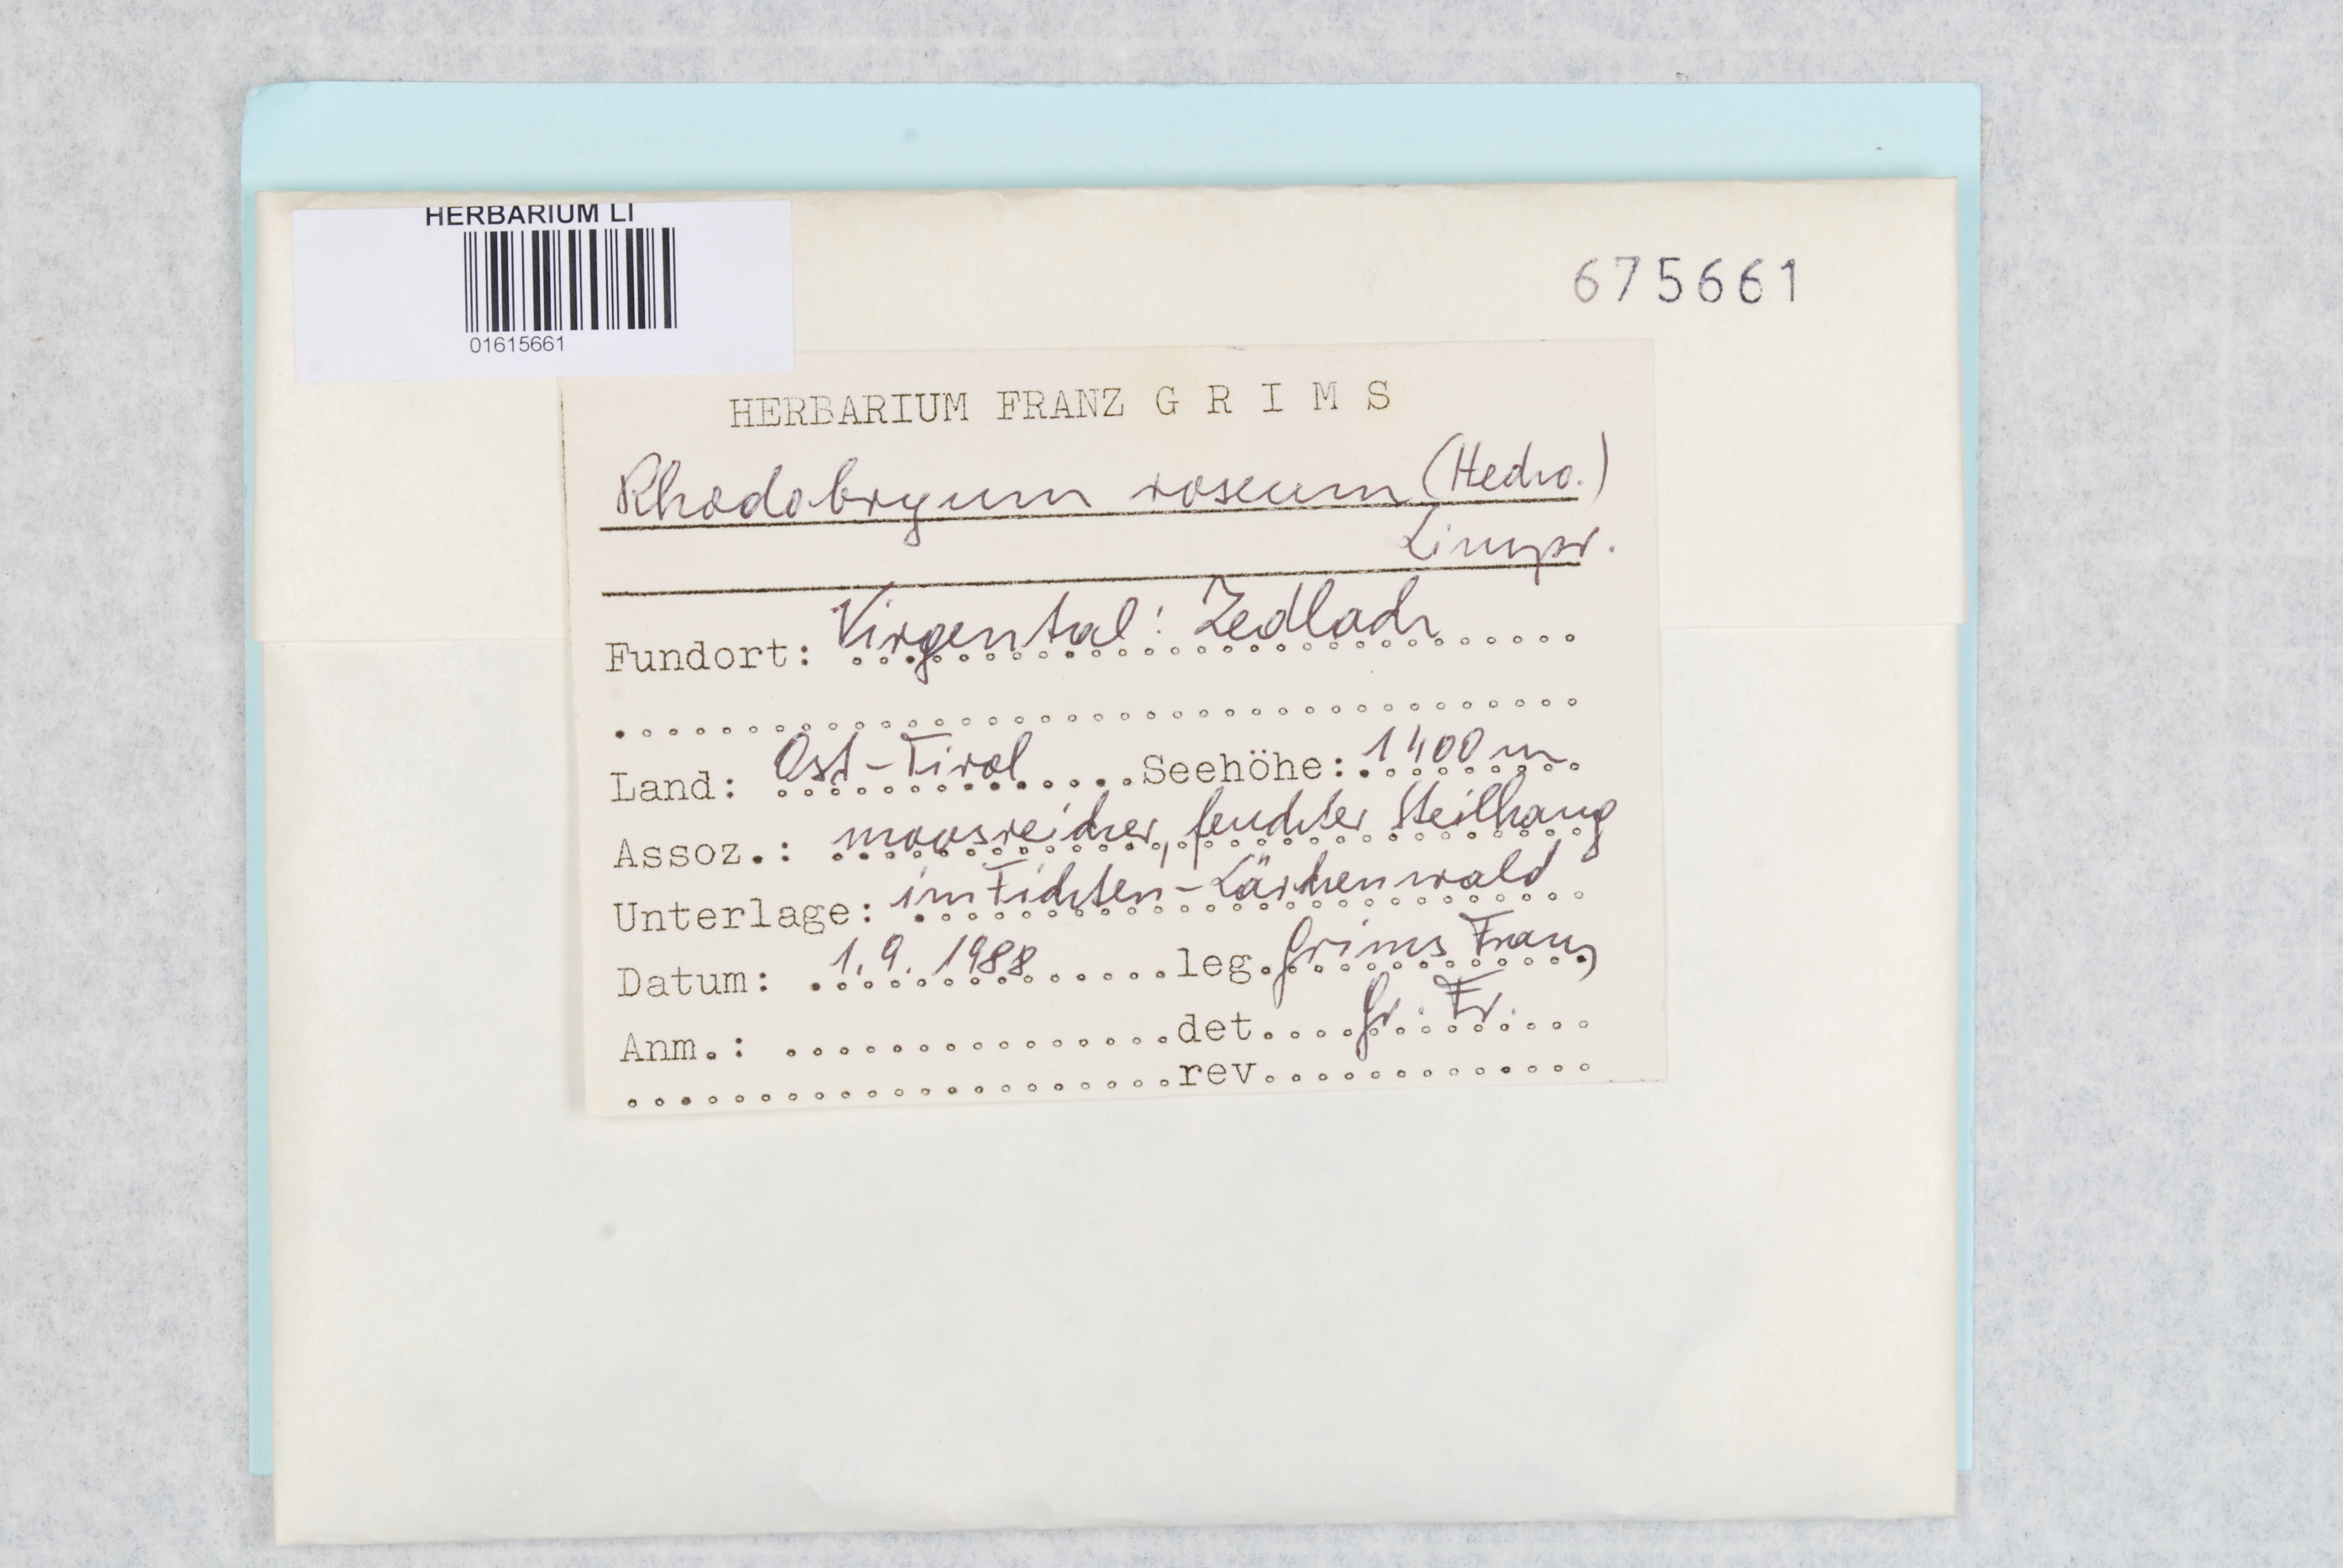 HERBARIUM LI
01615661
675661
HERBARIUM FRANZ G R I M S
Rhodobryum roseum (Hedw.)
Limpr.
Fundort: Virgental: Zedlach
Land: Ost-Tirol Seehöhe: 1400 m
Assoz.: moosreicher, feuchter Steilhang
Unterlage: im Fichten-Lärchenwald
Datum: 1.9.1988 leg. Grims Franz
Anm.: det. Gr. Fr.
rev.